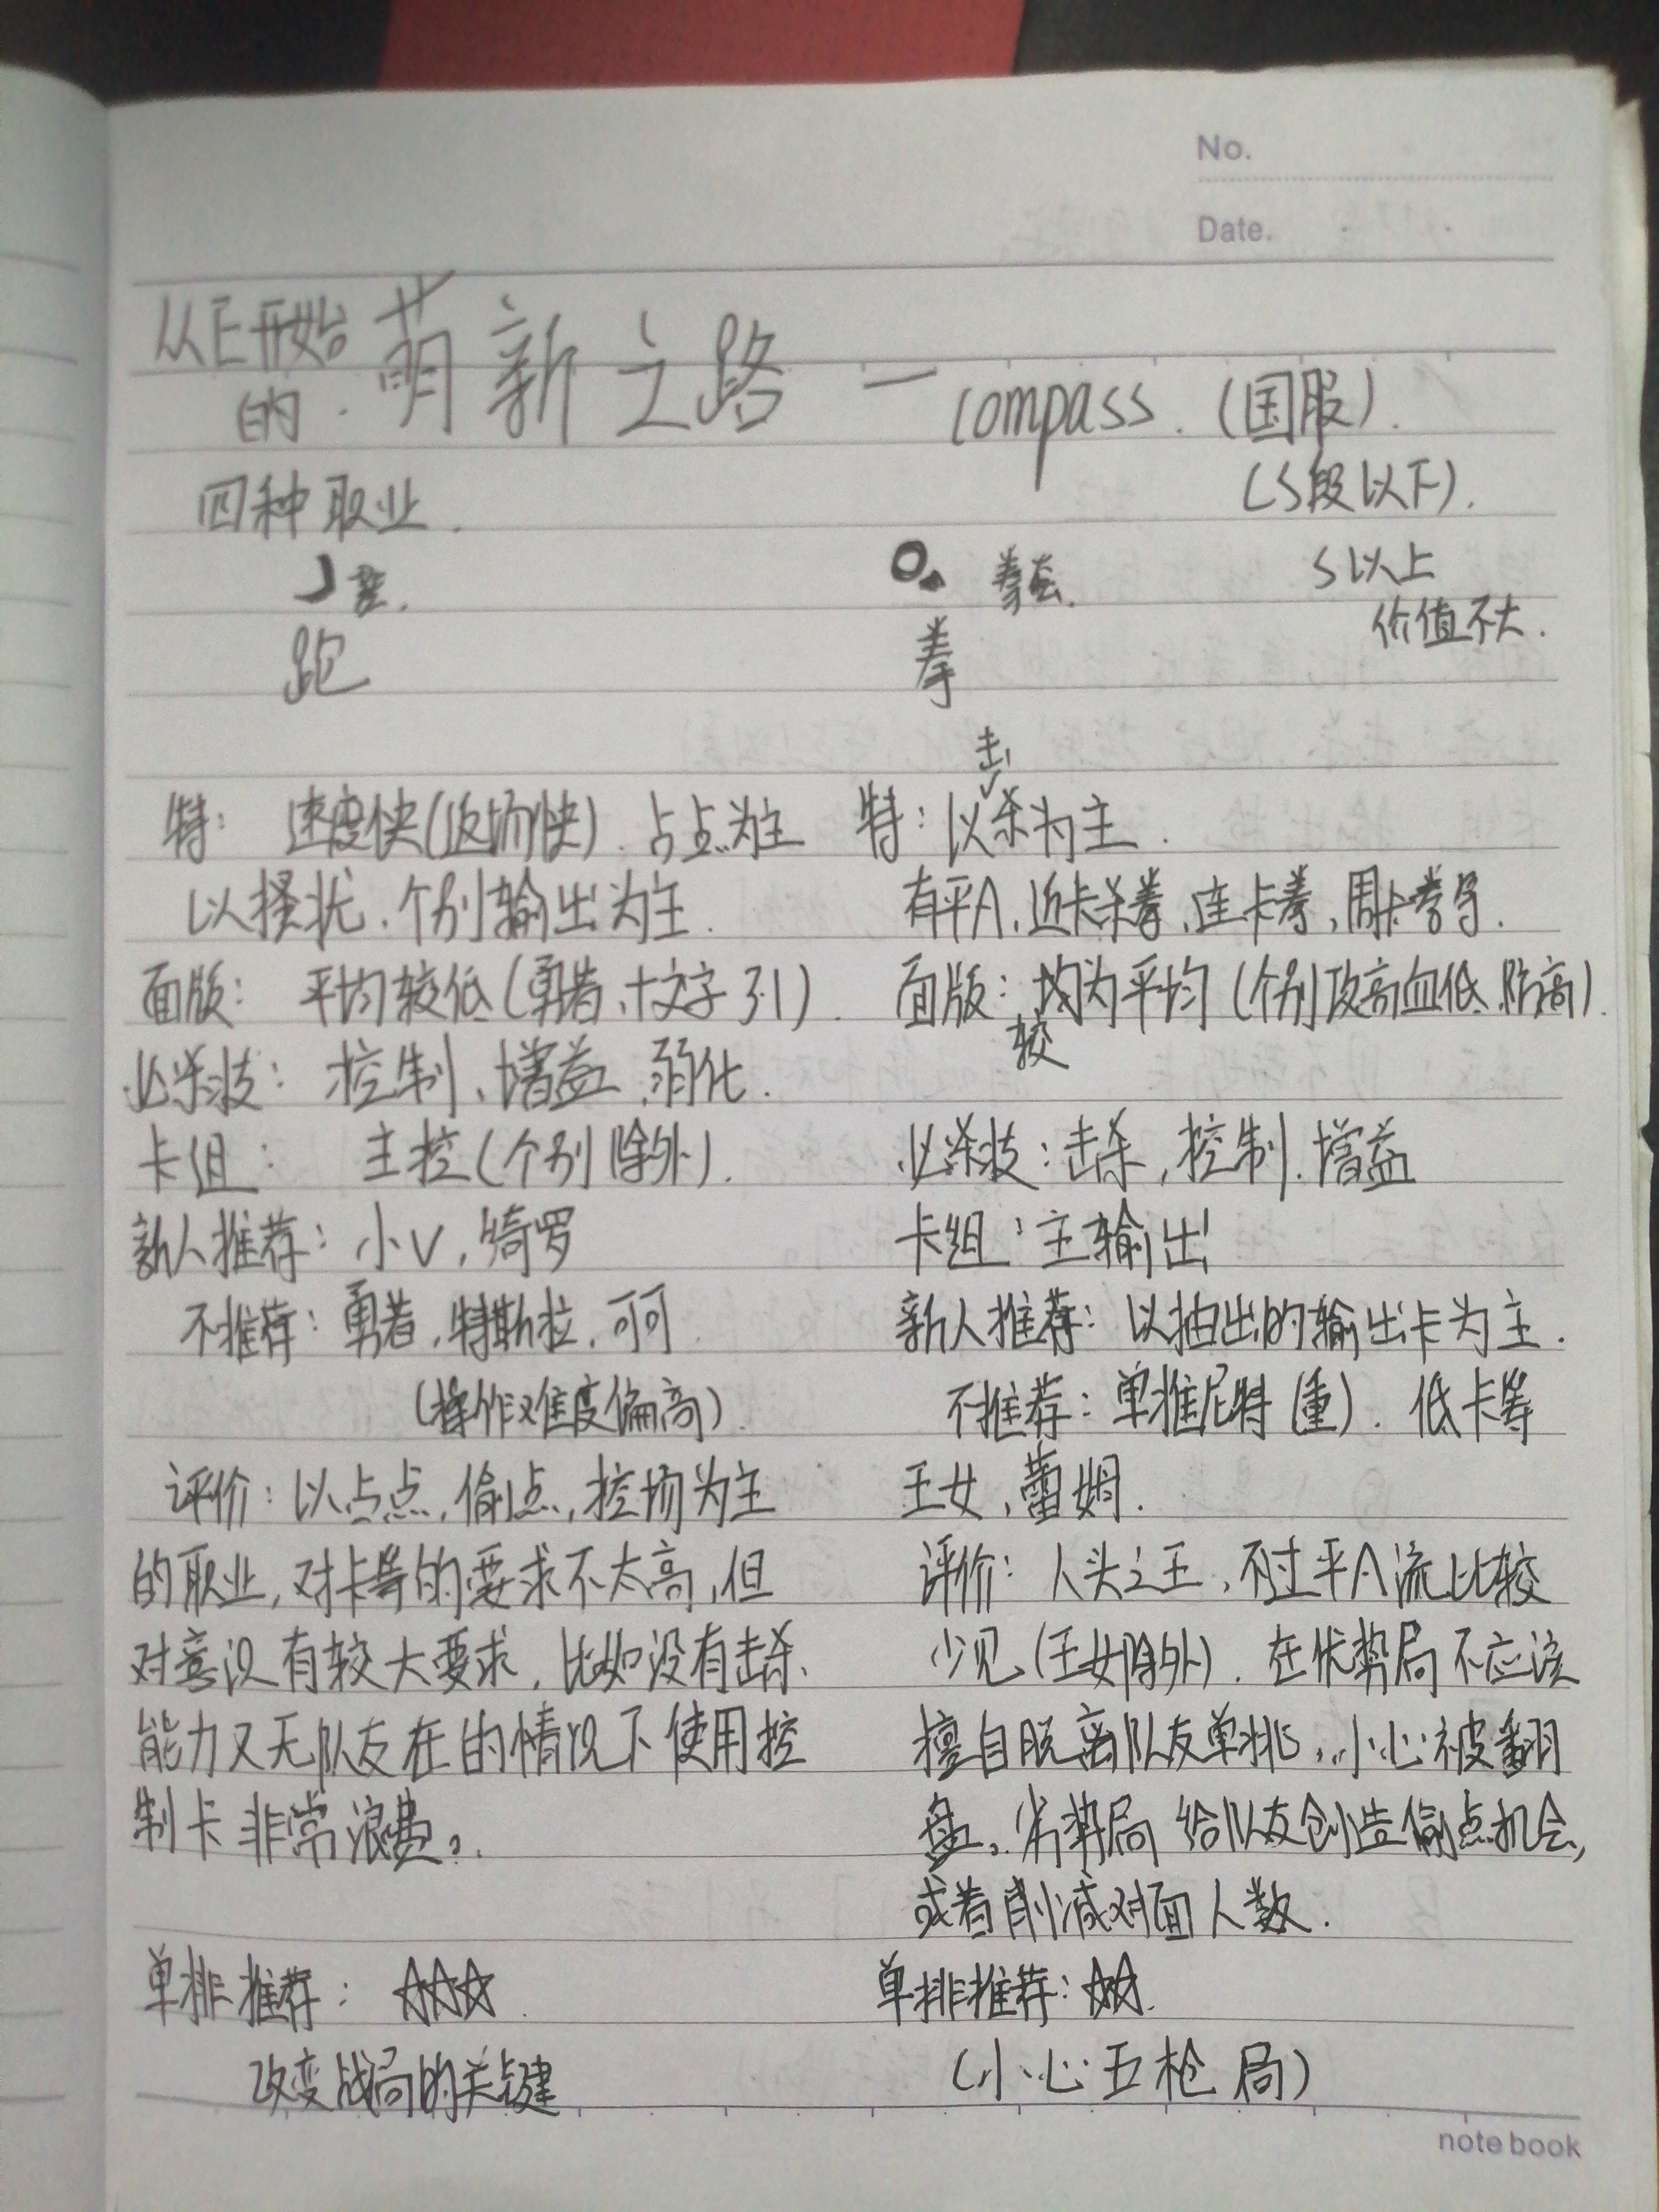 No.
Date.
从E开始的.萌新之路 — compass.(国服).
四种职业.
(S段以下).
S以上
价值不大.
跑
拳
特: 速度快(返场快).占点为主
以搔扰.个别输出为主.
面版: 平均较低(勇者、十文字 引).
必杀技: 控制、增益、弱化.
卡组: 主控(个别除外).
新人推荐: 小V,绮罗
不推荐: 勇者,特斯拉,可可.
(操作难度偏高).
评价: 以占点,偷点,控场为主
的职业,对卡等的要求不太高,但
对意识有较大要求,比如没有击杀、
能力又无队友在的情况下使用控
制卡非常浪费。.
单排推荐: ☆☆☆.
改变战局的关键
特: 以击杀为主.
有平A,近卡杀拳,连卡拳,周卡拳等.
面版: 均为较平均(个别攻高血低.防高).
必杀技: 击杀,控制.增益
卡组: 主输出
新人推荐: 以抽出的输出卡为主.
不推荐: 单推尼特(重). 低卡等
王女,蕾姆.
评价: 人头之王,不过平A流比较
少见(王女除外). 在优势局不应该
擅自脱离队友单挑,小心被翻
盘。劣势局 给队友创造偷点机会,
或者削减对面人数.
单排推荐: ☆☆.
(小心五枪局)
note book